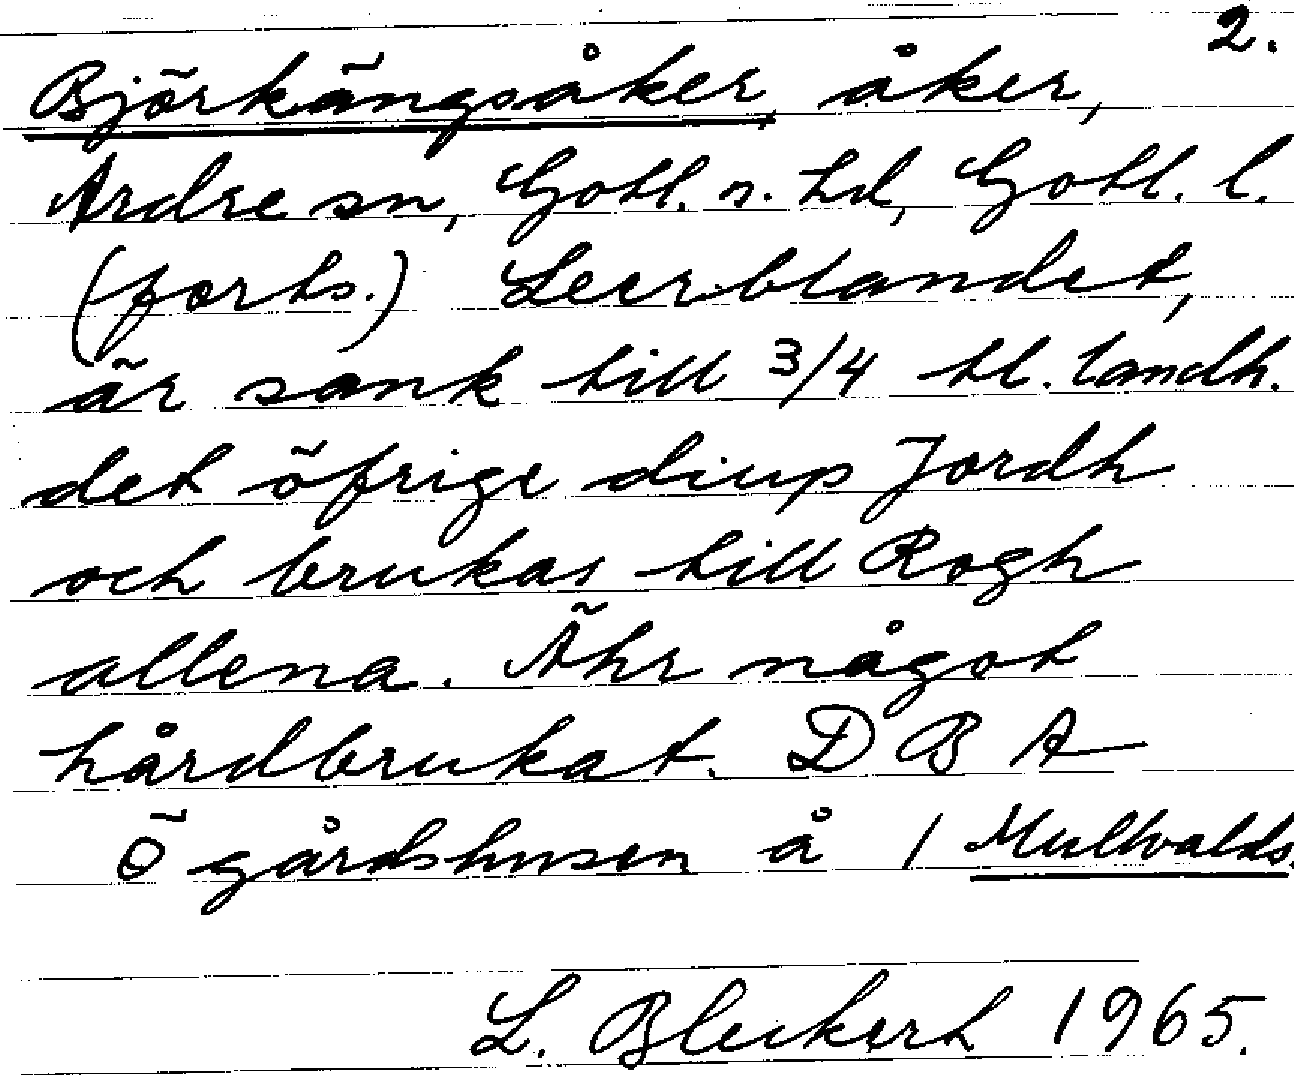 2.
Björkängsåker, åker,
Ardre sn, Gotl. n. hd, Gotl. l.
(forts.) Leerblandet,
är sank till 3/4 tl. landh.
det öfrige diup Jordh
och brukas till Rogh
allena. Ähr något
hårdbrukat. D B A
Ö gårdshusen å 1 Mullvalds.
L. Bleckert 1965.